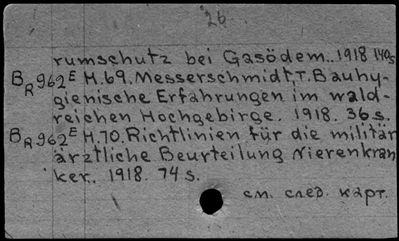 26
rumschutz bei Gasödem.. 1918 140s
BR962E H.69. Messerschmidt, T. Bauhy-
gienische Erfahrungen im wald-
reichen Hochgebirge. 1918. 36s.
BR962E H.70. Richtlinien für die militär
ärztliche Beurteilung Nierenkran
ker. 1918. 74s.
см. след. карт.